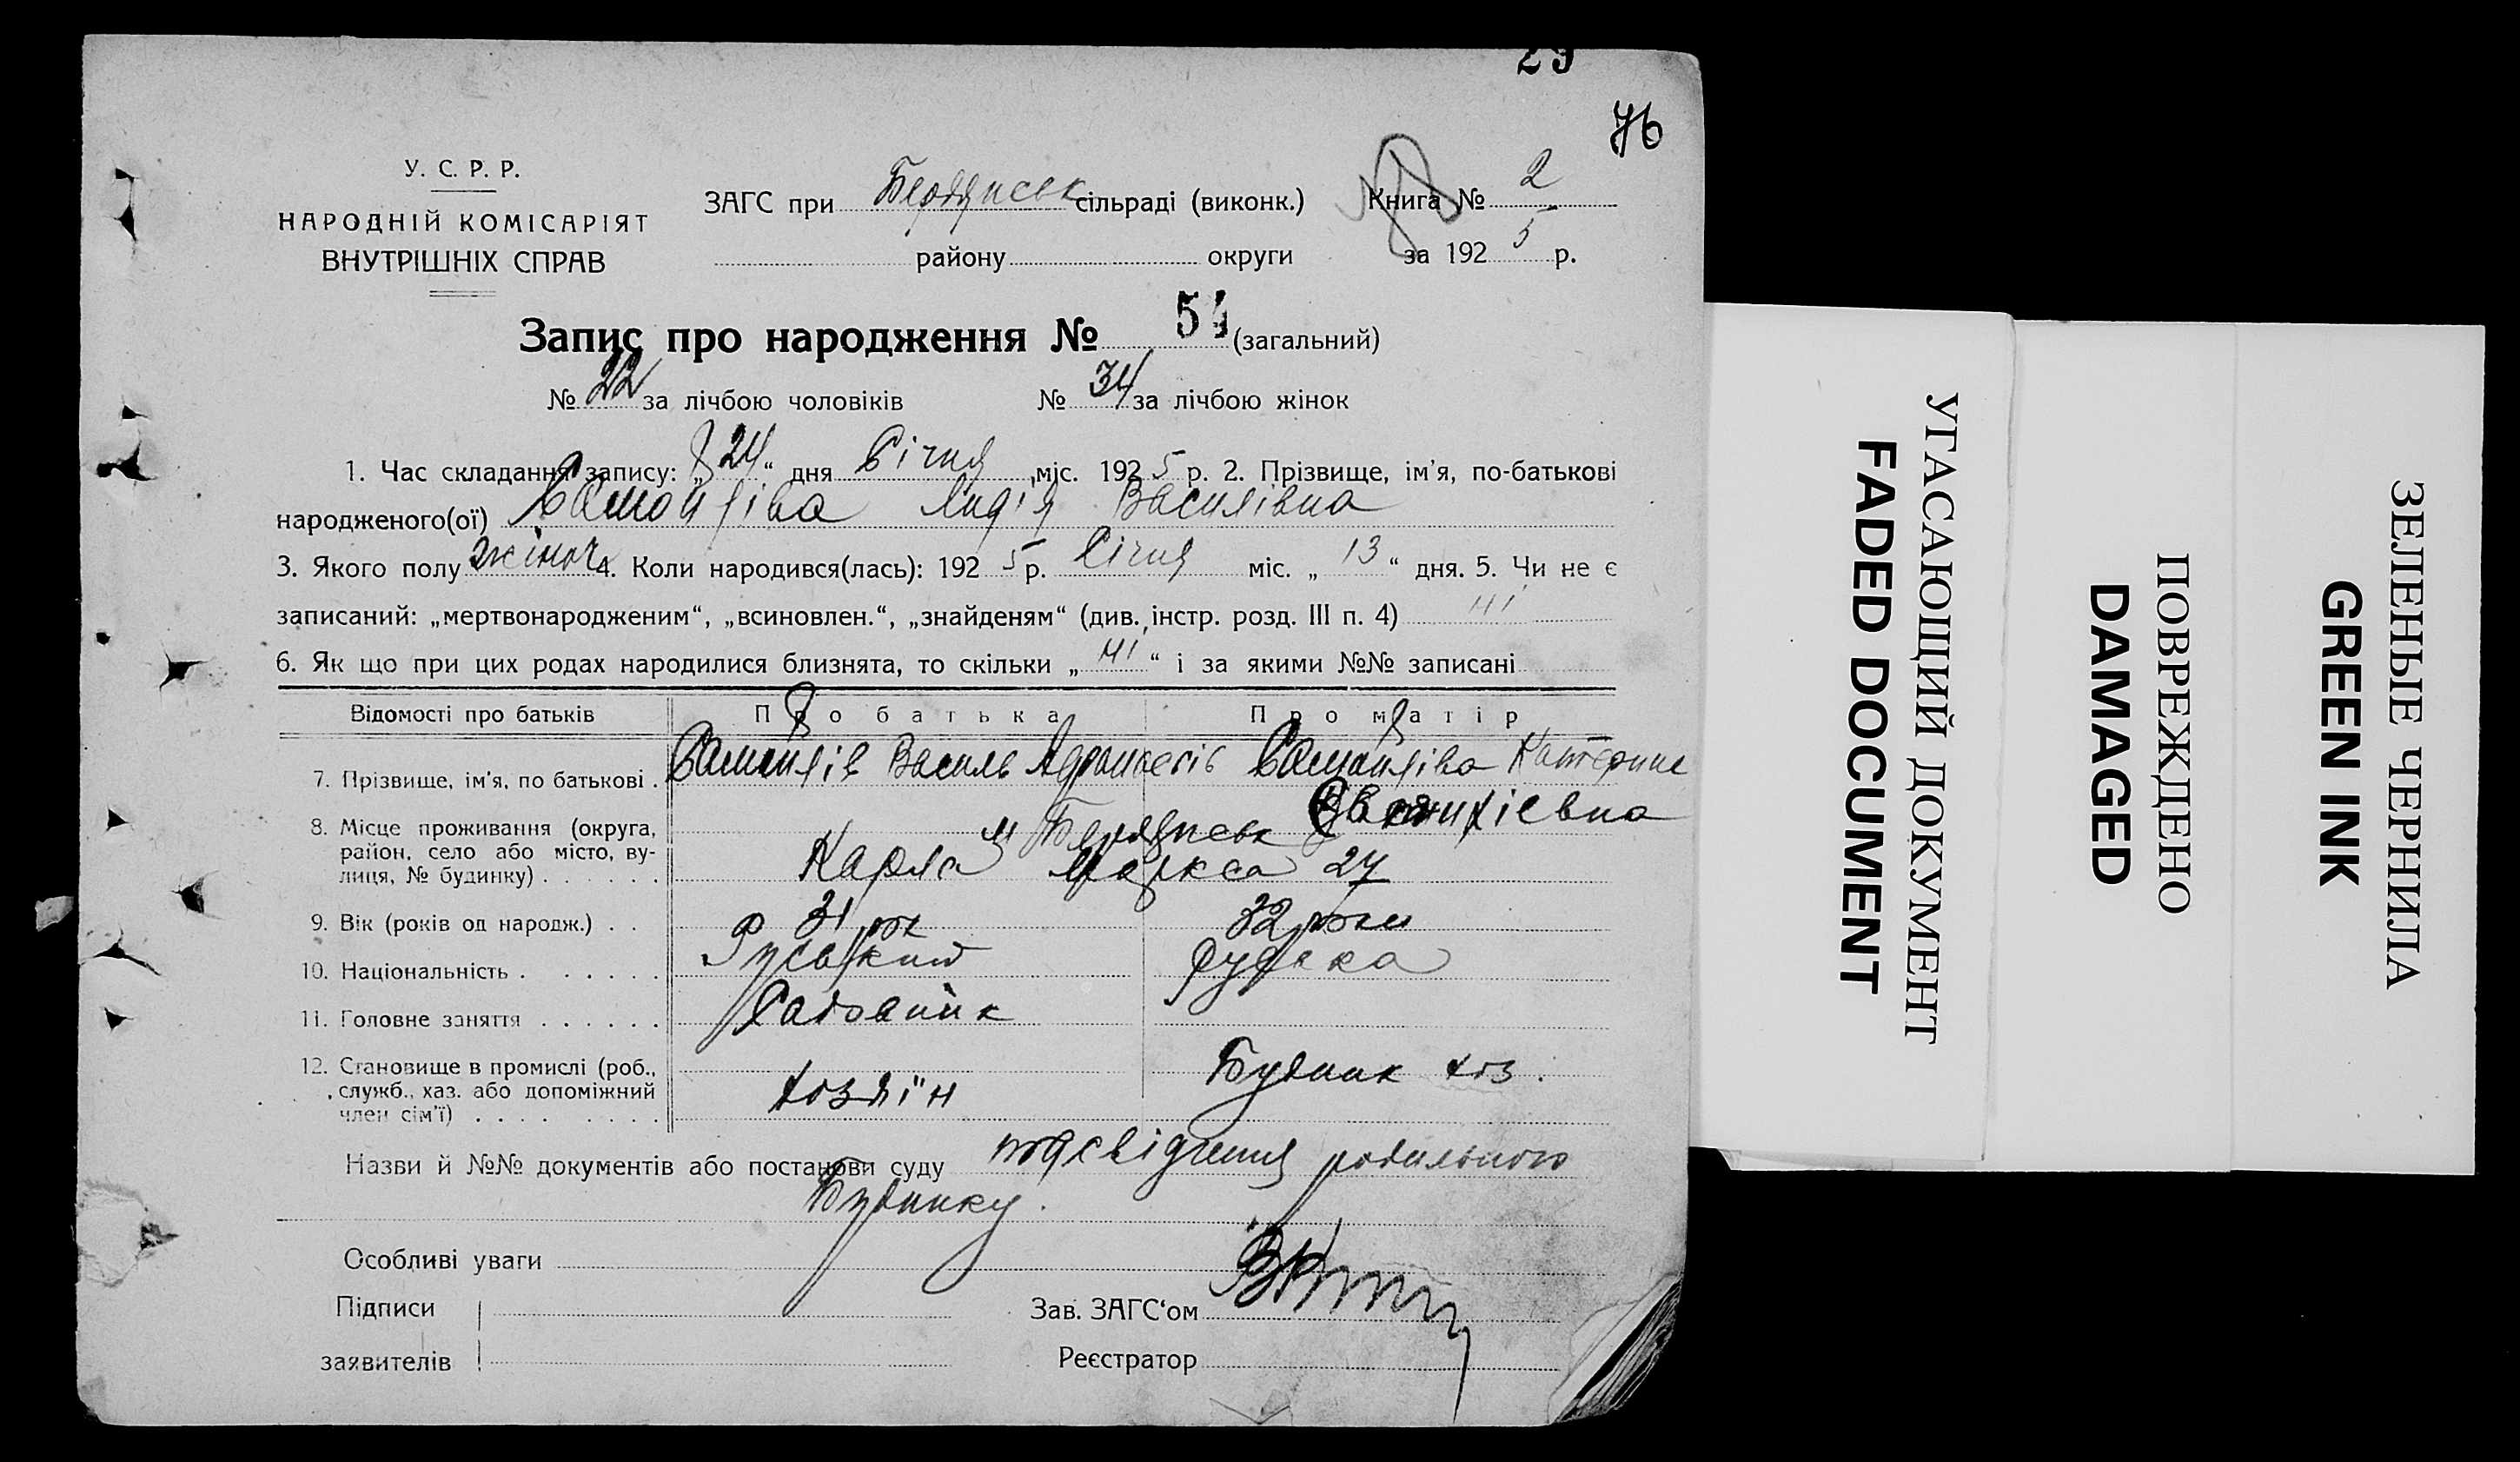 29
76
У. С. Р. Р.
НАРОДНІЙ КОМІСАРІЯТ
ВНУТРІШНІХ СПРАВ
ЗАГС при Бердянськ сільраді (виконк.)
району округи
Книга № 2
за 192 5 р.
Запис про народження № 54 (загальний)
№ 22 за лічбою чоловіків № 34 за лічбою жінок
1. Час складання запису: „ 24 “ дня Січня міс. 192 5 р. 2. Прізвище, ім’я, по-батькові
народженого(ої) Самойліва Лидія Василівна
3. Якого полу жіноч 4. Коли народився(лась): 192 5 р. Січня міс. „ 13 “ дня. 5. Чи не є
записаний: „мертвонародженим“, „всиновлен.“, „знайденям“ (див. інстр. розд. III п. 4) ні
6. Як що при цих родах народилися близнята, то скільки „ ні “ і за якими №№ записані
Відомості про батьків Про батька Про матір
7. Прізвище, ім’я, по батькові . Самойлів Василь Самойліва Катерина
8. Місце проживання (округа, район, село або місто, вулиця, № будинку) . . . . . . м Бердянськ
Карла Маркса 27
9. Вік (років од народж.) . . 31 рік 32 роки
10. Національність . . . . . . Руський руська
11. Головне заняття . . . . . . Садовник
12. Становище в промислі (роб., служб., хаз. або допоміжний член сім’ї) . . . . . . . . хозяїн Будинк хоз.
Назви й №№ документів або постанови суду посвідчення родильного
Будинку.
Особливі уваги
Підписи
заявителів
Зав. ЗАГС‘ом
Реєстратор
УГАСАЮЩИЙ ДОКУМЕНТ
FADED DOCUMENT
ПОВРЕЖДЕНО
DAMAGED
ЗЕЛЕНЫЕ ЧЕРНИЛА
GREEN INK